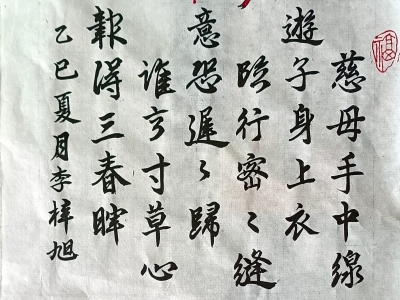 慈母手中線
遊子身上衣
臨行密〻縫
意恐遲〻歸
誰言寸草心
報得三春暉
乙巳夏月李梓旭